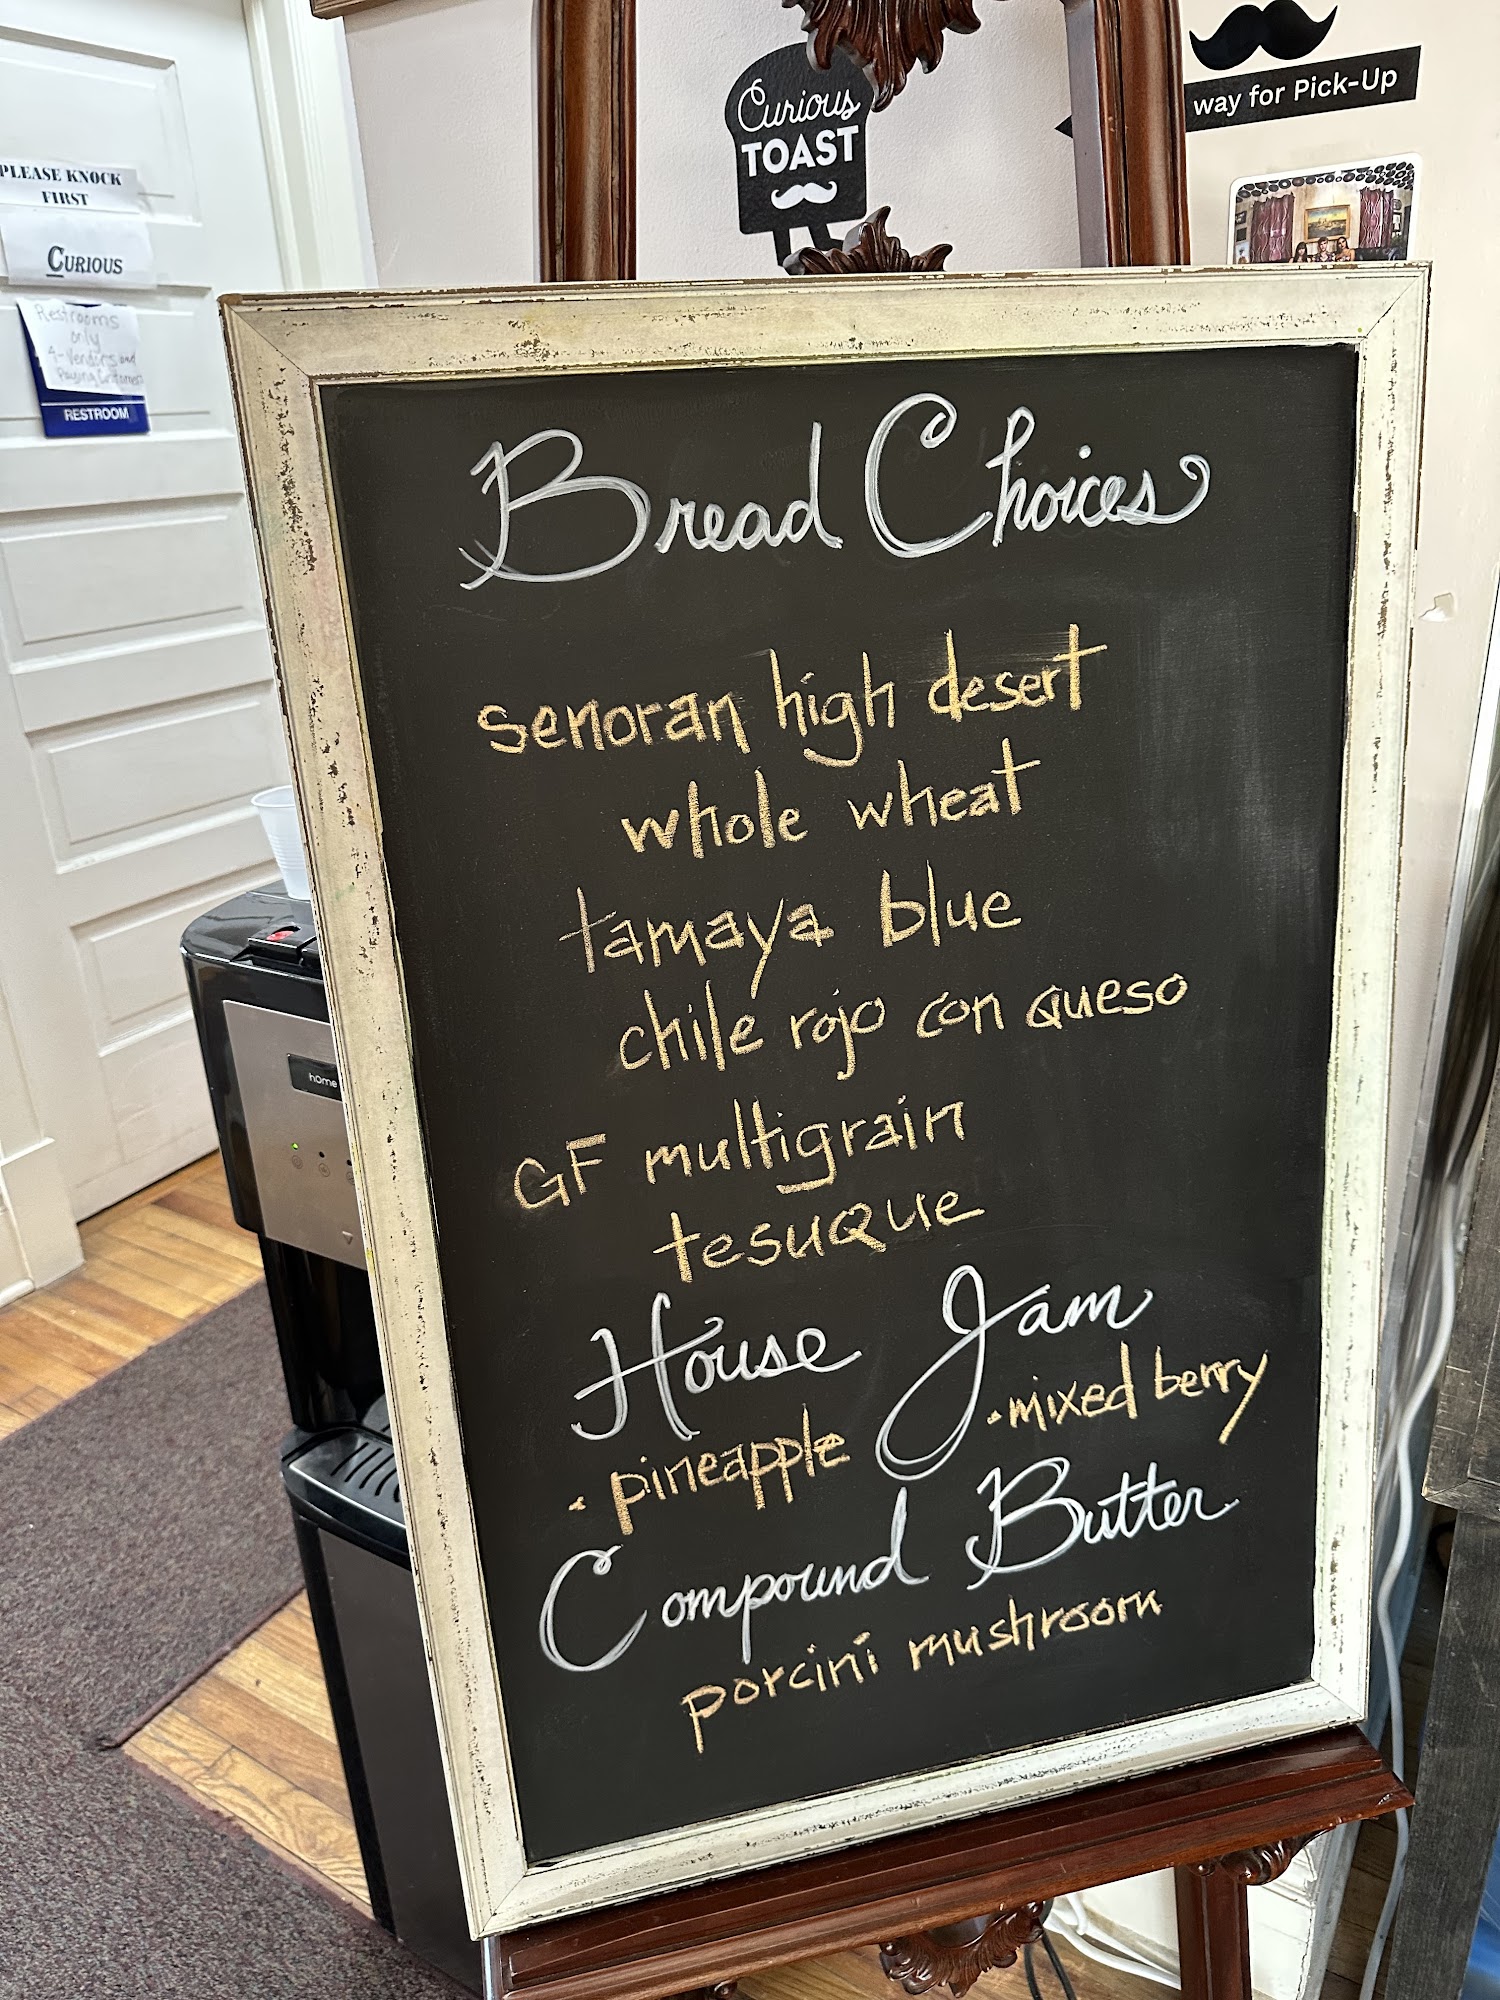 Curious
TOAST
way for Pick-Up
PLEASE KNOCK
FIRST
CURIOUS
Restrooms
only
4-Vendors and
Paying Customers
RESTROOM
Bread Choices
senoran high desert
whole wheat
tamaya blue
chile rojo con queso
GF multigrain
tesuque
House Jam
• pineapple • mixed berry
Compound Butter
porcini mushroom
home